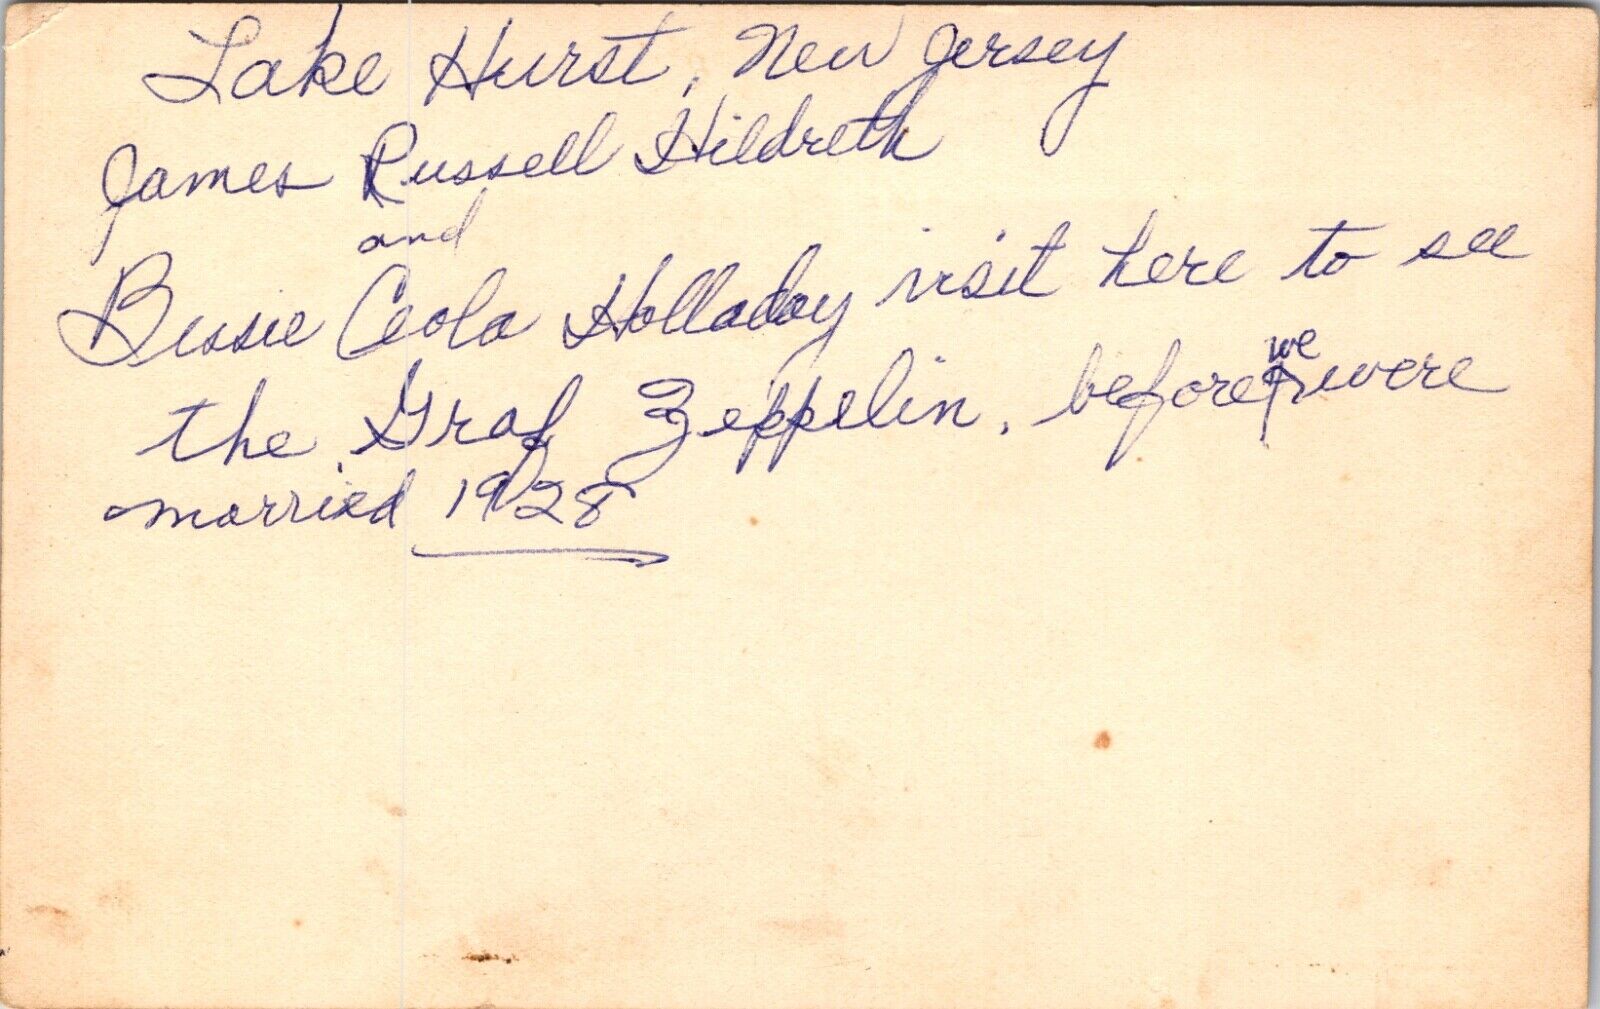 Lake Hurst, New Jersey
James Russell Hildreth
and
Bessie Ceola Holladay visit here to see
the Graf Zeppelin, before we were
married 1928